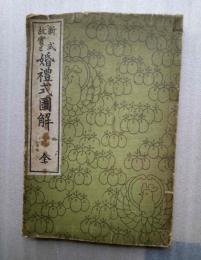 新式
故實
婚禮式圖解
全